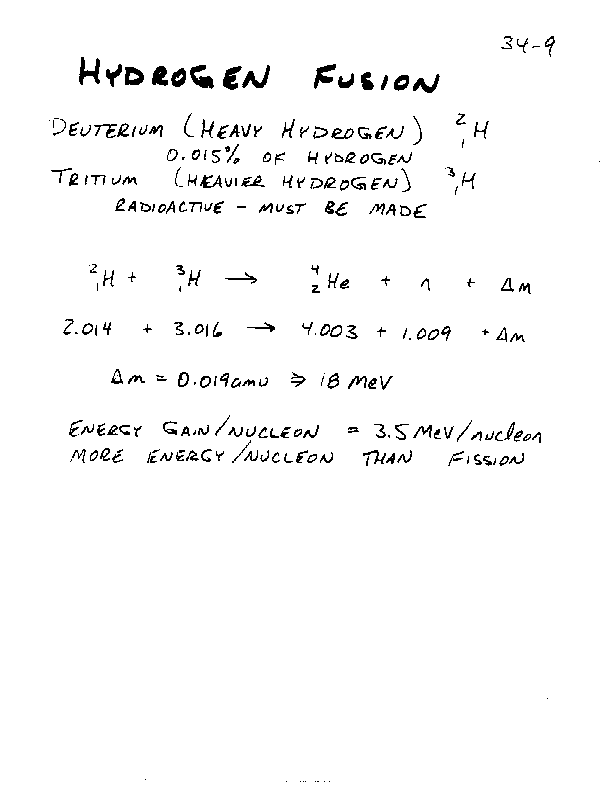 34-9
HYDROGEN FUSION
DEUTERIUM (HEAVY HYDROGEN) ²₁H
0.015% OF HYDROGEN
TRITIUM (HEAVIER HYDROGEN) ³₁H
RADIOACTIVE - MUST BE MADE
²₁H + ³₁H → ⁴₂He + n + Δm
2.014 + 3.016 → 4.003 + 1.009 + Δm
Δm = 0.019amu ⇒ 18 MeV
ENERGY GAIN/NUCLEON = 3.5 MeV/nucleon
MORE ENERGY/NUCLEON THAN FISSION